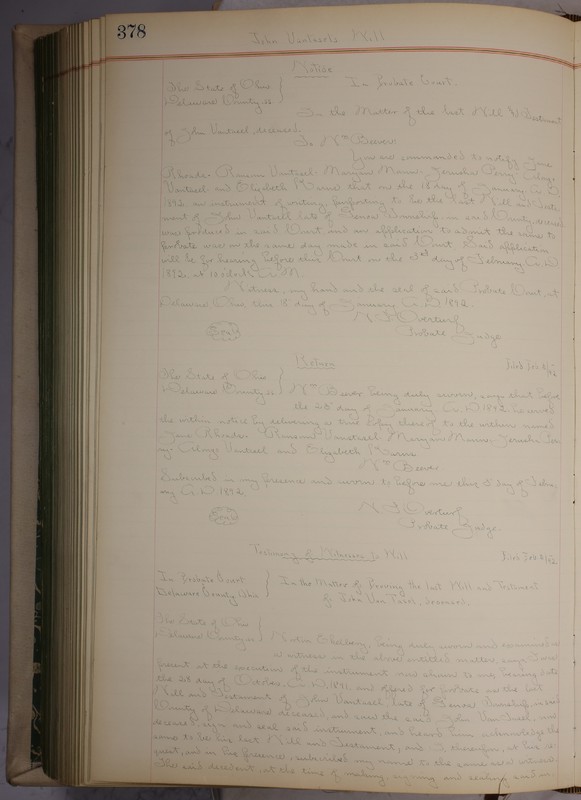 378
John Vantassels Will
Notice
The State of Ohio
Delaware County ss
In Probate Court.
In the Matter of the last Will & Testament
of John Vantsell, deceased.
To Wm Beever:
You are commanded to notify Jane
Rhoades Ransom Vantsell Maryann Manns, Jerusha Perry Calvary
Vantsell and Elizabeth that on the 18 day of January A.D.
1892, an instrument of writing, purporting to be the last Will and Testa-
ment of John Vantsell late of Genoa Township, in said County, deceased
was produced in said Court and an application to admit the same to
probate was on the same day made in said Court. Said application
will be for hearing before this Court on the day of February A.D.
1892, at 10 o'clock A.M.
Witness, my hand and the seal of said Probate Court, at
Delaware Ohio this 18 day of January A.D. 1892.
Seal
Probate Judge
Return
Filed Feb 8/92
The State of Ohio
Delaware County ss
Wm Beever being duly sworn, says that before
the day of January A.D. 1892 he served
the within notice by delivering a true Copy thereof to the within named
Jane Rhoades Ransom Vantsell Maryann Manns, Jerusha Per-
ry Vantsell and Elizabeth
Wm Beever
Subscribed in my presence and sworn to before me this 8 day of Febru-
ary A.D. 1892.
Seal
Probate Judge.
Testimony of Witnesses to Will
Filed Feb 8/92
In Probate Court
Delaware County Ohio
In the Matter of Proving the last Will and Testament
of John Van Tassel, deceased.
The State of Ohio
Delaware County ss
being duly sworn and examined as
a witness in the above entitled matter, says I was
present at the execution of the instrument now shown to me, bearing date
the day of October A.D. 1891, and offered for probate as the last
Will and Testament of John Vantsell late of Genoa Township, in said
County of Delaware deceased, and saw the said John Van Tassel, now
deceased, sign and seal said instrument, and heard him acknowledge the
same to be his last Will and Testament, and I, thereupon, at his re-
quest, and in his presence, subscribed my name to the same as a witness.
The said decedent, at the time of making, signing and sealing said in-